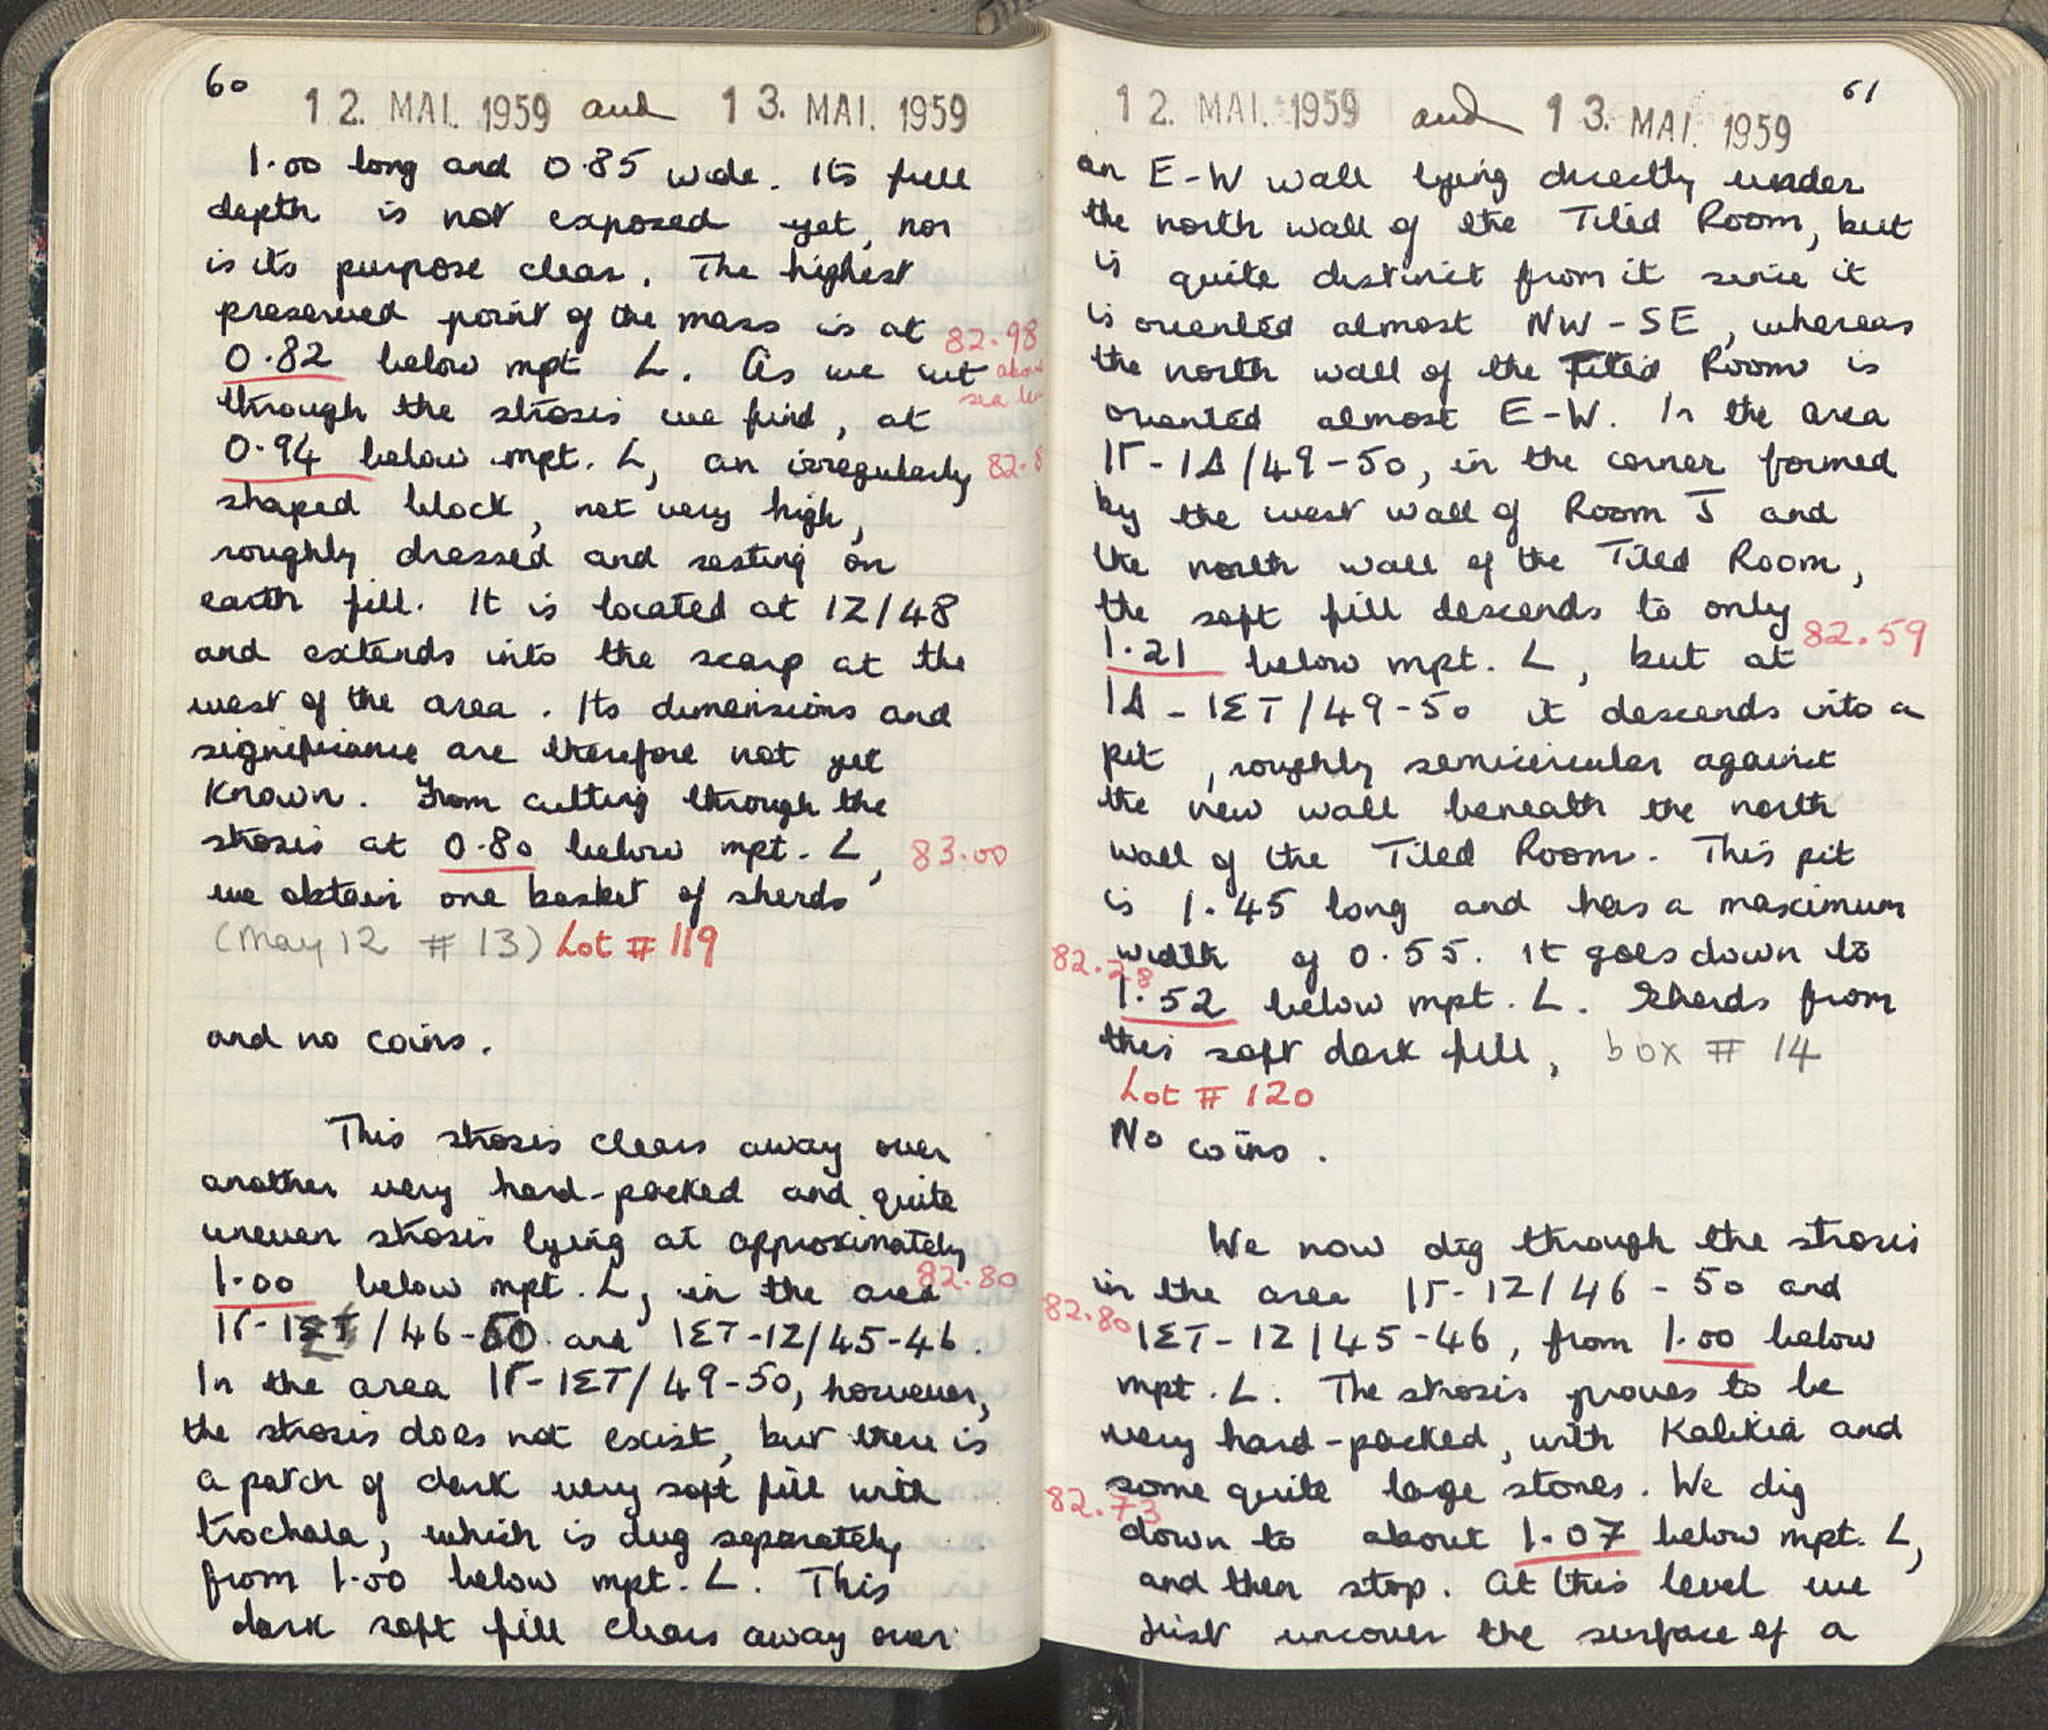 60
12. MAI. 1959 and 13. MAI. 1959
1.00 long and 0.85 wide. Its full
depth is not exposed yet, nor
is its purpose clear. The highest
preserved point of the mass is at 82.98
0.82 below mpt L. As we cut above
through the strosis we find, at sea
0.94 below mpt. L, an irregularly 82.8
shaped block, not very high,
roughly dressed and resting on
earth fill. It is located at IZ/48
and extends into the scarp at the
west of the area. Its dimensions and
significance are therefore not yet
known. From cutting through the
strosis at 0.80 below mpt. L, 83.00
we obtain one basket of sherds
(May 12 # 13) Lot # 119
and no coins.
This strosis clears away over
another very hard-packed and quite
uneven strosis lying at approximately
1.00 below mpt. L, in the area 82.80
ΙΓ-ΙΣΤ/46-50 and ΙΣΤ-ΙΖ/45-46.
In the area ΙΓ-ΙΣΤ/49-50, however,
the strosis does not exist, but there is
a patch of dark very soft fill with
trochala, which is dug separately
from 1.00 below mpt. L. This
dark soft fill clears away over
61
12. MAI. 1959 and 13. MAI. 1959
an E-W wall lying directly under
the north wall of the Tiled Room, but
is quite distinct from it since it
is oriented almost NW-SE, whereas
the north wall of the Tiled Room is
oriented almost E-W. In the area
ΙΓ-ΙΔ/49-50, in the corner formed
by the west wall of Room J and
the north wall of the Tiled Room,
the soft fill descends to only
1.21 below mpt. L, but at 82.59
ΙΔ-ΙΣΤ/49-50 it descends into a
pit, roughly semicircular against
the new wall beneath the north
wall of the Tiled Room. This pit
is 1.45 long and has a maximum
width of 0.55. It goes down to
82.28 1.52 below mpt. L. Sherds from
this soft dark fill, box # 14
Lot # 120
No coins.
We now dig through the strosis
in the area ΙΓ-ΙΖ/46-50 and
82.80 ΙΣΤ-ΙΖ/45-46, from 1.00 below
mpt. L. The strosis proves to be
very hard-packed, with Kalikia and
some quite large stones. We dig
82.73 down to about 1.07 below mpt. L,
and then stop. At this level we
just uncover the surface of a